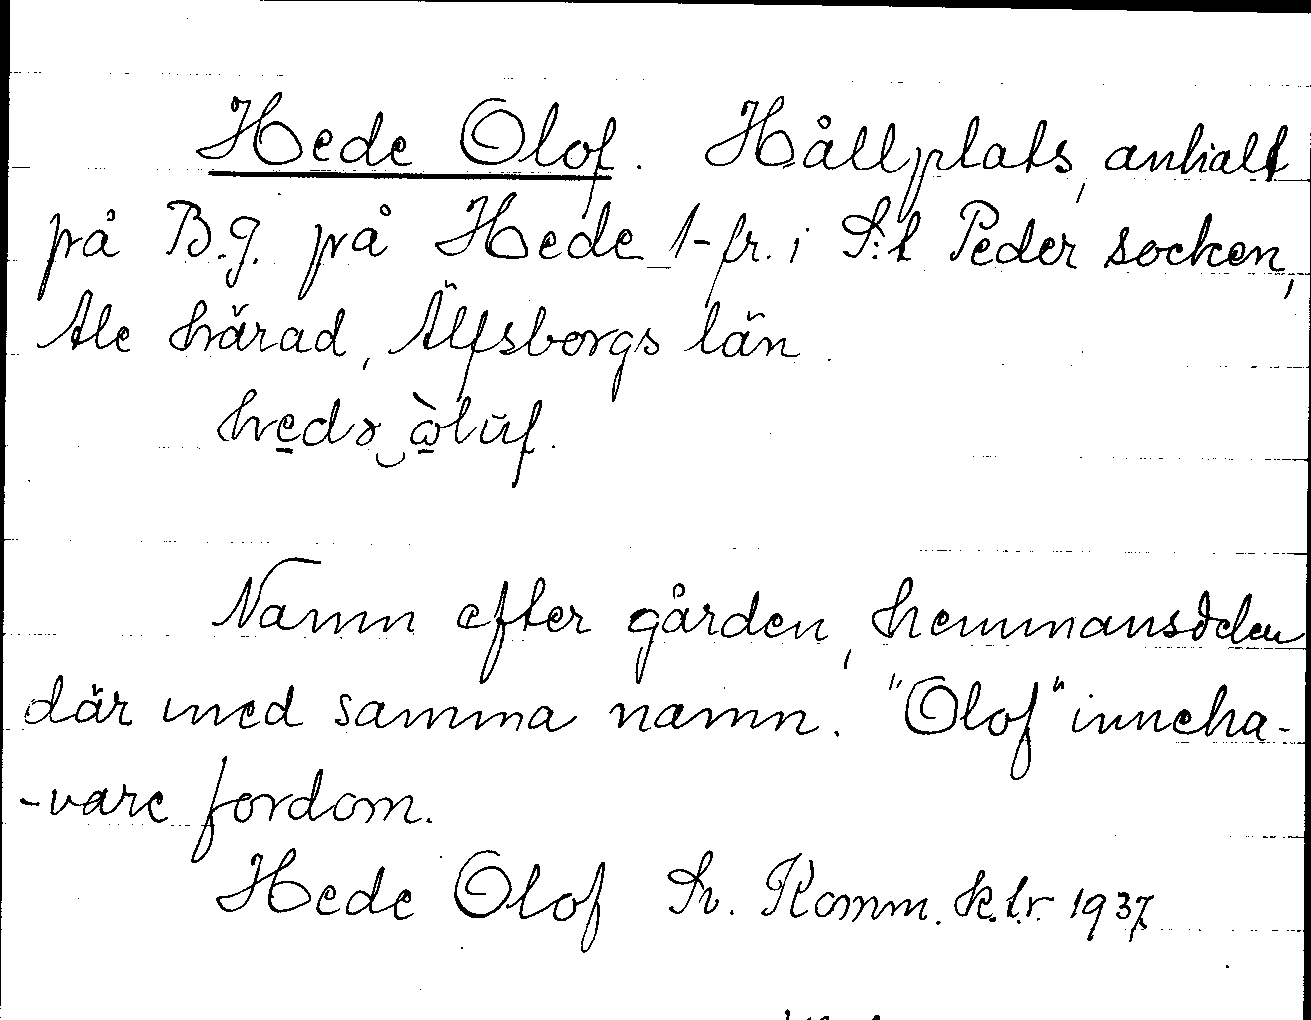 Hede Olof. Hållplats, anhalt
på B.J. på Hede 1-fr. i S:t Peder socken,
Ale härad, Älfsborgs län.
Namn efter gården, hemmansdelen
där med samma namn. "Olof" inneha-
-vare fordom.
Hede Olof Sv. Komm. k.l.r. 1937